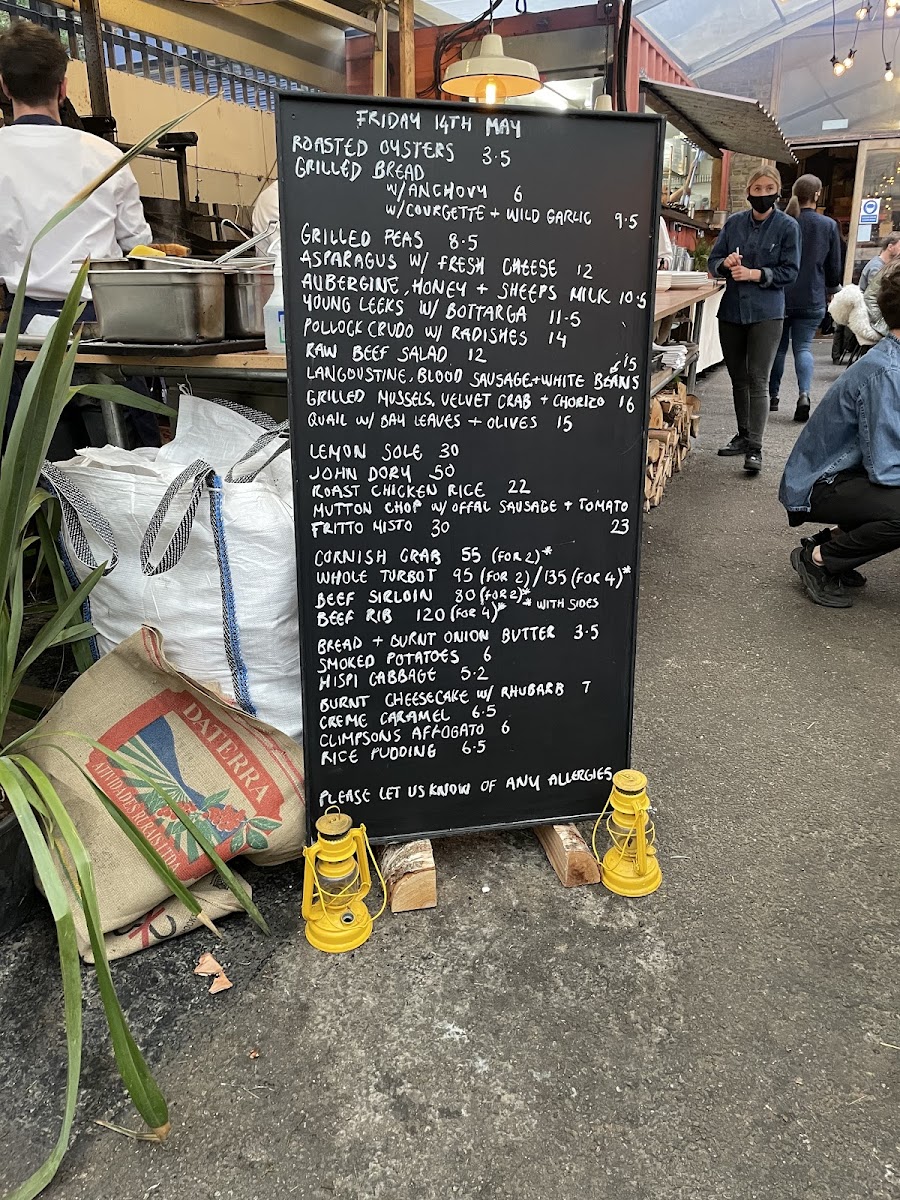 FRIDAY 14TH MAY
ROASTED OYSTERS 3.5
GRILLED BREAD
W/ANCHOVY 6
W/COURGETTE + WILD GARLIC 9.5
GRILLED PEAS 8.5
ASPARAGUS W/ FRESH CHEESE 12
AUBERGINE, HONEY + SHEEPS MILK 10.5
YOUNG LEEKS W/ BOTTARGA 11.5
POLLOCK CRUDO W/ RADISHES 14
RAW BEEF SALAD 12
LANGOUSTINE, BLOOD SAUSAGE + WHITE BEANS 15
GRILLED MUSSELS, VELVET CRAB + CHORIZO 16
QUAIL W/ BAY LEAVES + OLIVES 15
LEMON SOLE 30
JOHN DORY 50
ROAST CHICKEN RICE 22
MUTTON CHOP W/ OFFAL SAUSAGE + TOMATO 23
FRITTO MISTO 30
CORNISH CRAB 55 (FOR 2)*
WHOLE TURBOT 95 (FOR 2) / 135 (FOR 4)*
BEEF SIRLOIN 80 (FOR 2)*
BEEF RIB 120 (FOR 4)* * WITH SIDES
BREAD + BURNT ONION BUTTER 3.5
SMOKED POTATOES 6
HISPI CABBAGE 5.2
BURNT CHEESECAKE W/ RHUBARB 7
CREME CARAMEL 6.5
CLIMPSONS AFFOGATO 6
RICE PUDDING 6.5
PLEASE LET US KNOW OF ANY ALLERGIES
DATERRA
ATIVIDADES RURAIS LTDA